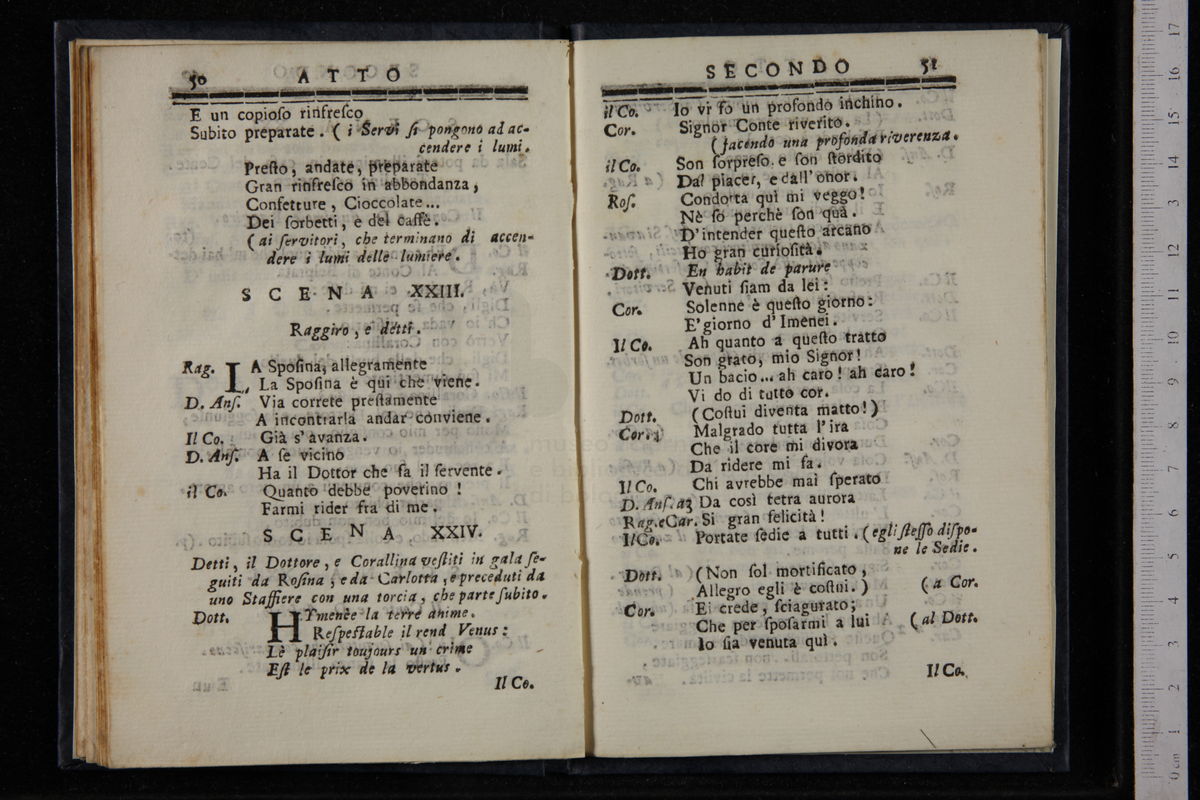 50 ATTO
E un copioſo rinfreſco
Subito preparate. ( i Servi ſi pongono ad ac-
cendere i lumi.
Preſto, andate, preparate
Gran rinfreſco in abbondanza,
Confetture, Cioccolate...
Dei ſorbetti, e del caffè.
( ai ſervitori, che terminano di accen-
dere i lumi delle lumiere.
SCENA XXIII.
Raggiro, e detti.
Rag. LA Spoſina, allegramente
La Spoſina è quì che viene.
D. Anſ. Via correte preſtamente
A incontrarla andar conviene.
Il Co. Già s'avanza.
D. Anſ. A ſe vicino
Ha il Dottor che fa il ſervente.
il Co. Quanto debbe poverino!
Farmi rider fra di me.
SCENA XXIV.
Detti, il Dottore, e Corallina veſtiti in gala ſe-
guiti da Roſina, e da Carlotta, e preceduti da
uno Staffiere con una torcia, che parte ſubito.
Dott. HYmenèe la terre anime.
Reſpeſtable il rend Venus:
Lè plaiſir toujours un crime
Eſt le prix de la vertus.
Il Co.
SECONDO 51
il Co. Io vi fo un profondo inchino.
Cor. Signor Conte riverito.
(facendo una profonda riverenza.
il Co. Son ſorpreſo e ſon ſtordito
Dal piacer, e dall'onor.
Roſ. Condotta quì mi veggo!
Nè ſo perchè ſon quà.
D'intender queſto arcano
Ho gran curioſità.
Dott. En habit de parure
Venuti ſiam da lei:
Cor. Solenne è queſto giorno:
E' giorno d'Imenei.
Il Co. Ah quanto a queſto tratto
Son grato, mio Signor!
Un bacio... ah caro! ah caro!
Vi do di tutto cor.
Dott. (Coſtui diventa matto!)
Cor. Malgrado tutta l'ira
Che il core mi divora
Da ridere mi fa.
Il Co. Chi avrebbe mai ſperato
D. Anſ. a3 Da così tetra aurora
Rag. e Car. Si gran felicità!
Il Co. Portate ſedie a tutti. (egli ſteſſo diſpo-
ne le Sedie.
Dott. (Non ſol mortificato,
Allegro egli è coſtui.) (a Cor.
Cor. Ei crede, ſciagurato;
Che per ſpoſarmi a lui (al Dott.
Io ſia venuta quì.
Il Co.